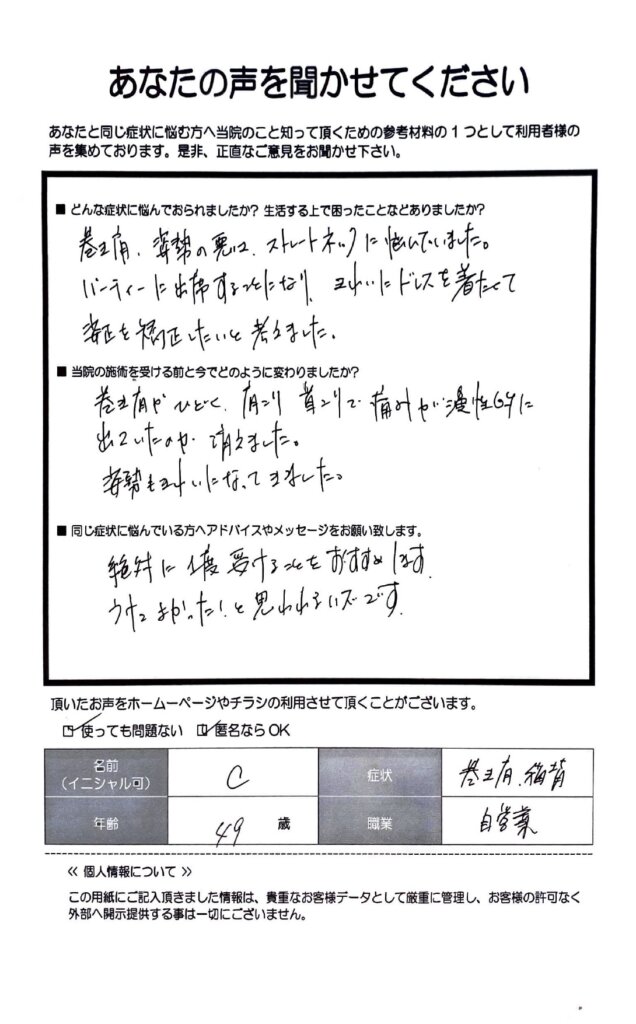 あなたの声を聞かせてください
あなたと同じ症状に悩む方へ当院のこと知って頂くための参考材料の1つとして利用者様の
声を集めております。是非、正直なご意見をお聞かせ下さい。
■ どんな症状に悩んでおられましたか? 生活する上で困ったことなどありましたか?
巻き肩、姿勢の悪さ、ストレートネックに悩んでいました。
パーティーに出席することになり、きれいにドレスを着たくて
姿正を矯正したいと考えました。
■ 当院の施術を受ける前と今でどのように変わりましたか?
巻き肩がひどく、肩こり 首こりで痛みが慢性的に
出ていたのが消えました。
姿勢もきれいになってきました。
■ 同じ症状に悩んでいる方へアドバイスやメッセージをお願い致します。
絶対に1度受けることをおすすめします。
うけてよかった!と思われるハズです。
頂いたお声をホームーページやチラシの利用させて頂くことがございます。
☑ 使っても問題ない ☑ 匿名ならOK
名前
(イニシャル可) C 症状 巻き肩、猫背
年齢 49 歳 職業 自営業
≪ 個人情報について ≫
この用紙にご記入頂きました情報は、貴重なお客様データとして厳重に管理し、お客様の許可なく
外部へ開示提供する事は一切にございません。